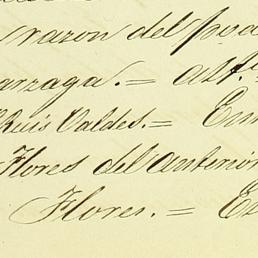 razon del pod
arzaga. = alf.
Ruis Valdes. = Em
Flores del anterior
Flores. = Es